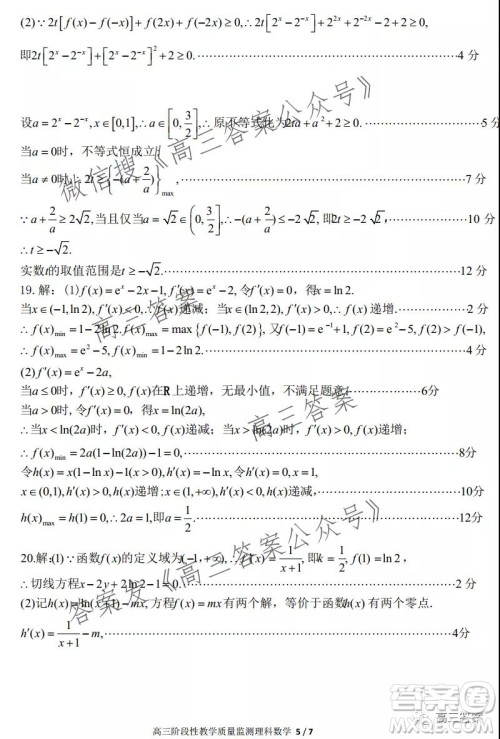 (2)∵2t[f(x)-f(-x)]+f(2x)+f(-2x)≥0,∴2t[2ˣ-2⁻ˣ]+2²ˣ+2⁻²ˣ-2+2≥0,
即2t[2ˣ-2⁻ˣ]+[2ˣ-2⁻ˣ]²+2≥0.⋯⋯4分
设a=2ˣ-2⁻ˣ,x∈[0,1],∴a∈[0,3/2],∴原不等式化为2ta+a²+2≥0.
当a=0时，不等式恒成立
当a≠0时,∴2t≥{-(a+2/a)}max,⋯⋯7分
∵a+2/a≥2√2,当且仅当a=√2∈(0,3/2],∴-(a+2/a)≤-2√2,即2t≥-2√2,⋯⋯
∴t≥-√2.
实数t的取值范围是t≥-√2.⋯⋯12分
19.解：(1)f(x)=eˣ-2x-1,f′(x)=eˣ-2,令f′(x)=0,得x=ln2.
当x∈(-1,ln2),f′(x)<0,∴f(x)递减；当x∈(ln2,2),f′(x)>0,∴f(x)递增.⋯⋯2分
∴f(x)min=1-2ln2.f(x)max=max{f(-1),f(2)},又f(-1)=e⁻¹+1,f(2)=e²-5>f(-1),
∴f(x)max=e²-5,f(x)min=1-2ln2.⋯⋯4分
(2)f′(x)=eˣ-2a,
当a≤0时，f′(x)≥0,f(x)在R上递增，无最小值，不满足题意⋯⋯6分
当a>0时，令f′(x)=0,得x=ln(2a),
∴当x<ln(2a)时，f′(x)<0,f(x)递减；当x>ln(2a)时，f′(x)>0,f(x)递增.
∴f(x)min=2a(1-ln(2a))-1=0.⋯⋯8分
令h(x)=x(1-lnx)-1,h′(x)=-lnx,令h′(x)=0,x=1,
x∈(0,1),h′(x)>0,h(x)递增；x∈(1,+∞),h′(x)<0,h(x)递减，⋯⋯11分
h(x)max=h(1)=0,∴2a=1,即a=1/2.⋯⋯12分
20.解:(1)∵函数f(x)的定义域为(-1,+∞),f′(x)=1/(x+1),即k=1/2,f(1)=ln2,
∴切线方程x-2y+2ln2-1=0.⋯⋯2分
(2)记h(x)=ln(x+1)-mx,方程f(x)=mx有两个不等解，等价于函数h(x)有两个零点.
h′(x)=1/(x+1)-m,⋯⋯4分
高三阶段性教学质量监测理科数学 5 / 7
微信搜《高三答案公众号》
高三答案
高三答案
答案发《高三答案公众号》
高三答案